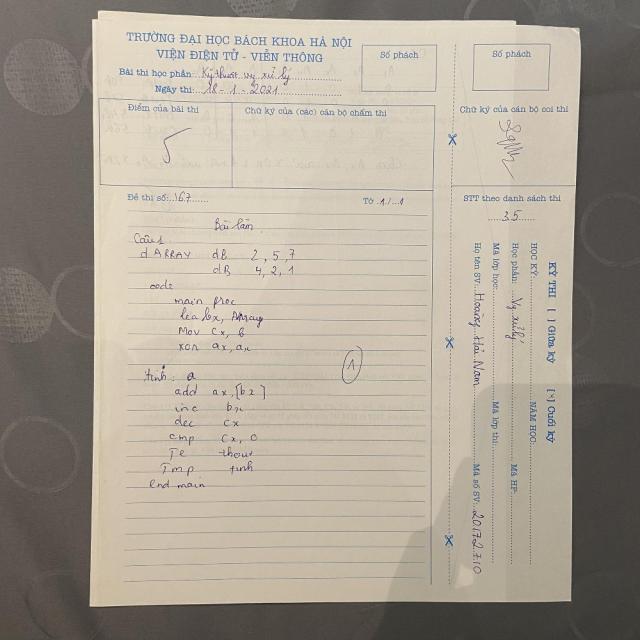 TRƯỜNG ĐẠI HỌC BÁCH KHOA HÀ NỘI
VIỆN ĐIỆN TỬ - VIỄN THÔNG
Bài thi học phần: Kỹ thuật vi xử lý
Ngày thi: 18 - 1 - 2021
Số phách
Số phách
Điểm của bài thi
5
Chữ ký của (các) cán bộ chấm thi
Chữ ký của cán bộ coi thi
Đề thi số: 167
Tờ 1/1
STT theo danh sách thi
35
Bài làm
Câu 1
d ARRAY dB 2, 5, 7
dB 4, 2, 1
code
main proc
lea bx, Array
Mov cx, 6
xor ax, ax
1
tinh: a
add ax, [bx]
inc bx
dec cx
cmp cx, 0
Je thoat
Jmp tinh
end main
KỲ THI [ ] Giữa kỳ [x] Cuối kỳ
HỌC KỲ: NĂM HỌC:
Học phần: Vi xử lý Mã HP:
Mã lớp học: Mã lớp thi:
Họ tên SV: Hoàng Hải Nam Mã số SV: 20172710